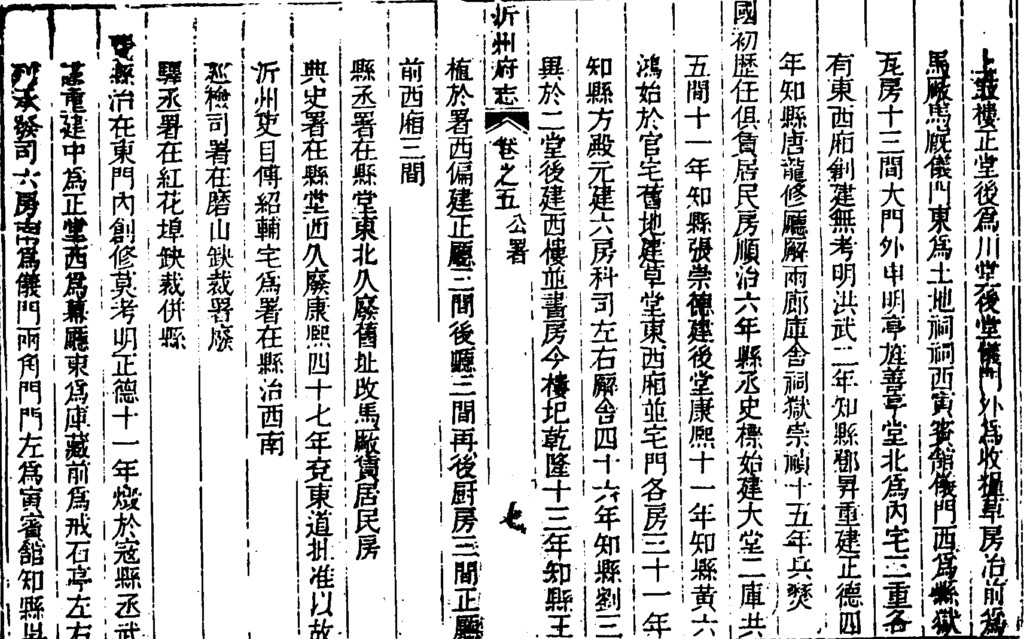 上鼓樓正堂後爲川堂後堂儀門外爲收糧草房治前爲
馬厰馬廐儀門東爲土地祠祠西寅賓館儀門西爲縣獄
瓦房十三間大門外申明亭旌善亭堂北爲內宅三重各
有東西廂創建無考明洪武二年知縣鄧昇重建正德四
年知縣唐龍修廳廨兩廊庫舍祠獄崇禎十五年兵燹
國初歷任俱賃居民房順治六年縣丞史標始建大堂二庫共
五間十一年知縣張崇德建後堂康熙十一年知縣黃六
鴻始於官宅舊地建草堂東西廂並宅門各房三十一年
知縣方殿元建六房科司左右廨舍四十六年知縣劉三
異於二堂後建西樓並書房今樓圮乾隆十三年知縣王
沂州府志 卷之五 公署 七
植於署西偏建正廳三間後廳三間再後厨房三間正廳
前西廂三間
縣丞署在縣堂東北久廢舊址改馬厰賃居民房
典史署在縣堂西久廢康熙四十七年兗東道批准以故
沂州吏目傅紹輔宅爲署在縣治西南
巡檢司署在磨山缺裁署廢
驛丞署在紅花埠缺裁併縣
縣治在東門內創修莫考明正德十一年燬於寇縣丞武
重建中爲正堂西爲幕廳東爲庫藏前爲戒石亭左右
列承發司六房南爲儀門兩角門門左爲寅賓館知縣